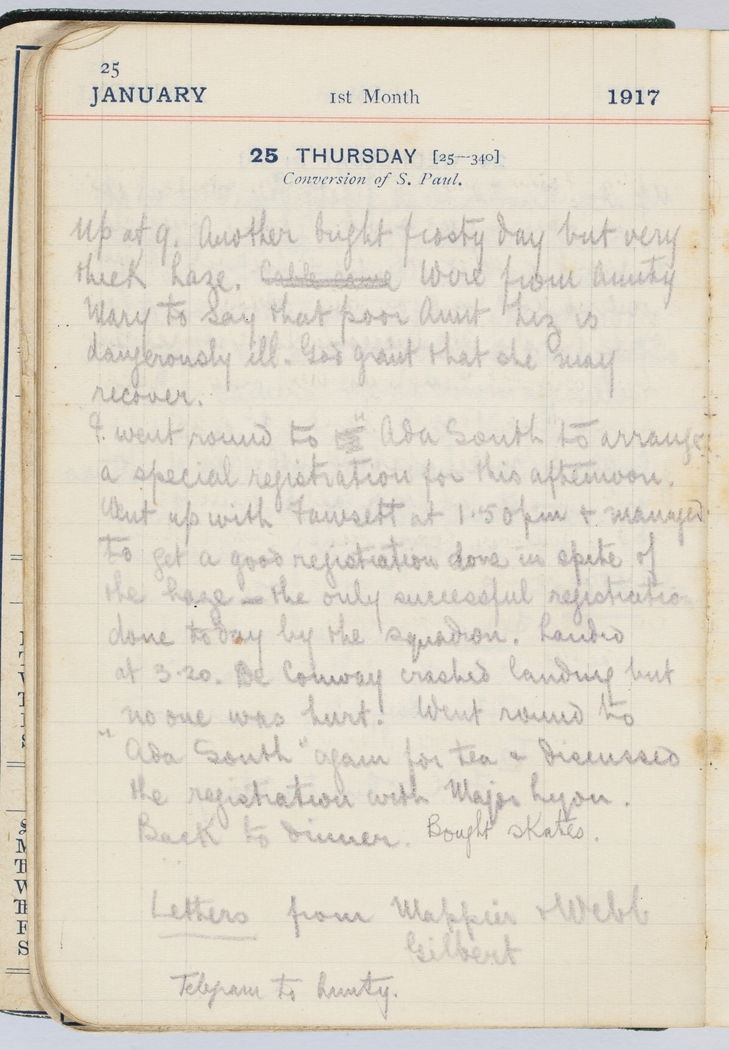 25
JANUARY 1st Month 1917
25 THURSDAY [25—340]
Conversion of S. Paul.
Up at 9. Another bright frosty day but very
thick haze. Cable came Wire from Aunty
Mary to say that poor Aunt Liz is
dangerously ill. God grant that she may
recover.
I went round to "Ada South" to arrange
a special registration for this afternoon.
Went up with Fawsett at 1.50pm & managed
to get a good registration done in spite of
the haze – the only successful registration
done today by the squadron. Landed
at 3.20. De Conway crashed landing but
no one was hurt. Went round to
"Ada South" again for tea & discussed
the registration with Major Lyon.
Back to dinner. Bought skates.
Letters from Mappin & Webb
Gilbert
Telegram to
S
M
T
W
Th
F
S